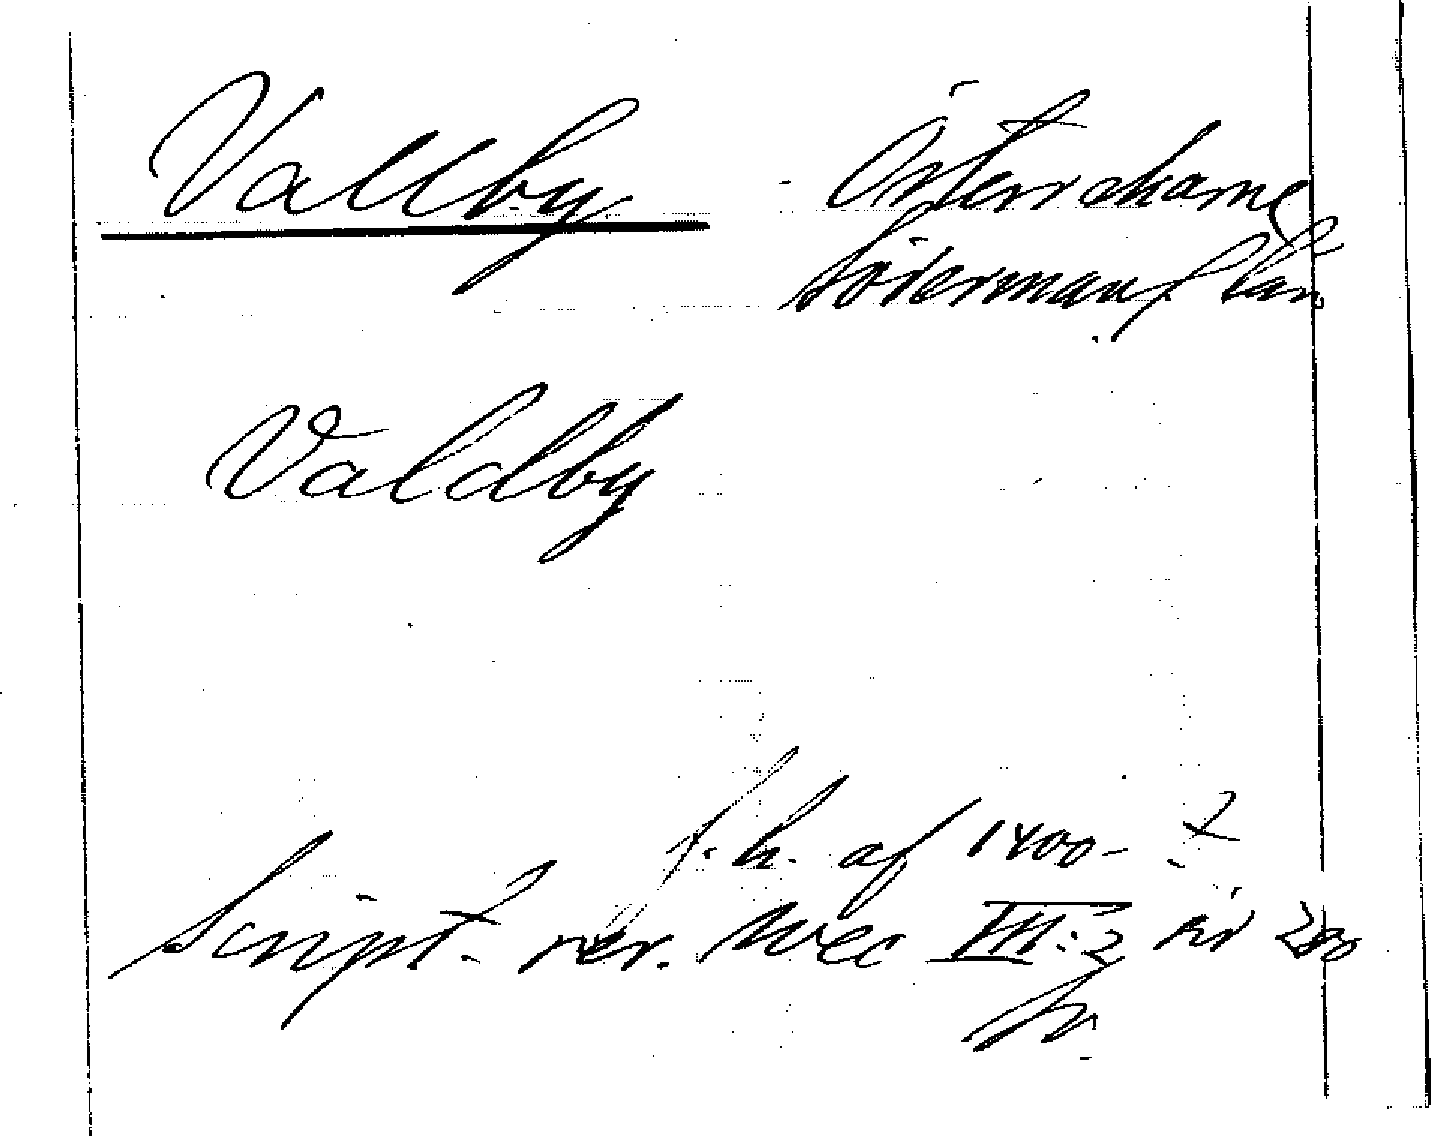 Vallby
Österrekarne
Södermanl län
Valdby
f. h. af 1400-t
Script. rer. svec III: 2 sid 280
fr.